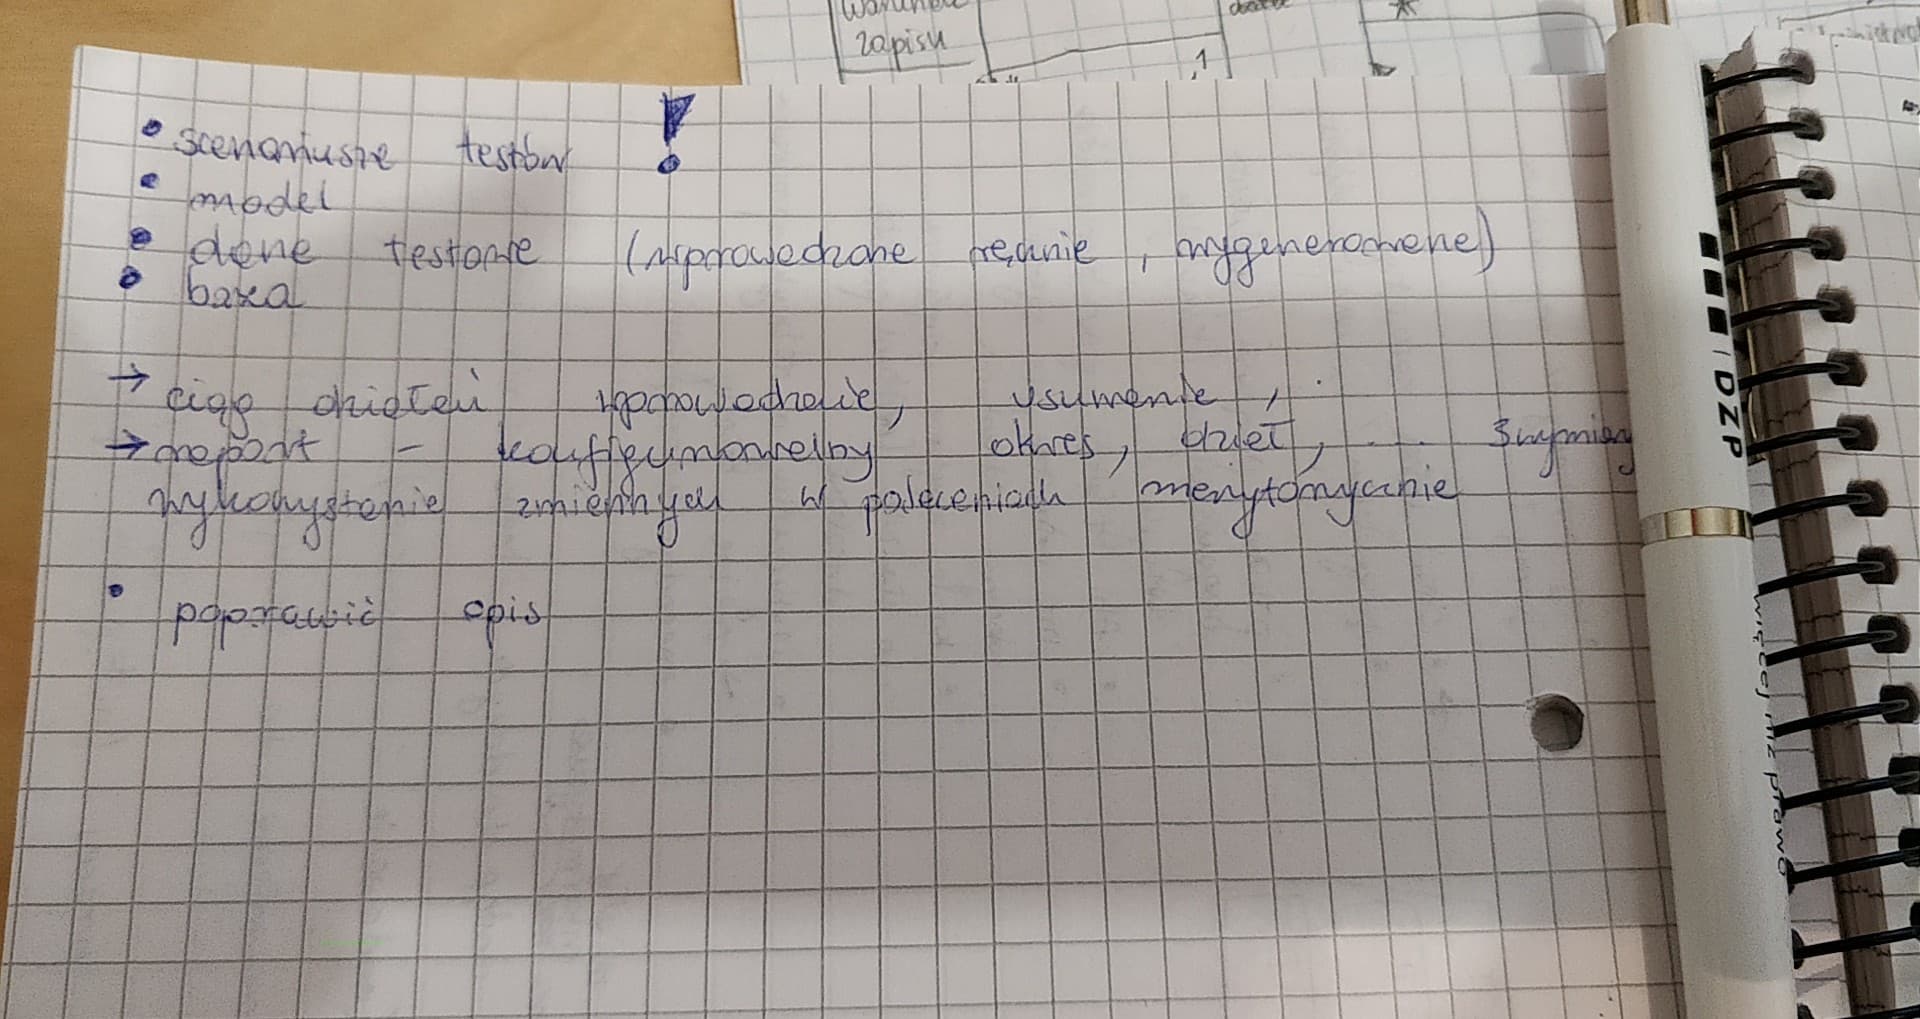 warunki
zapisu
1
• scenariusze testów !
• model
• dane testowe (wprowadzone ręcznie, wygenerowane)
• baza
→ ciąg działań wprowadzenie, usuwanie,
→ raport – konfigurowalny okres, dział, ... 3 wymiary
wykorzystanie zmiennych w poleceniach merytorycznie
• poprawić opis
IDZP
więcej niż prawo